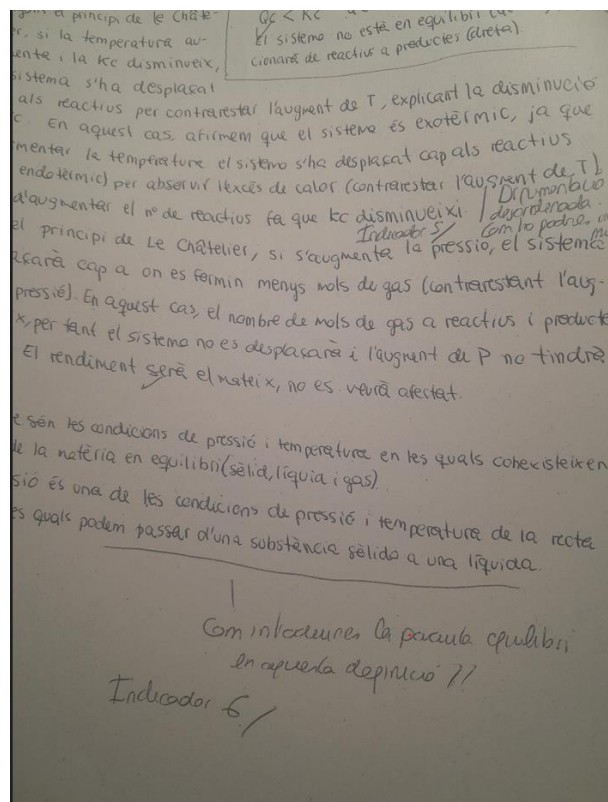 el principi de le Châte-
r, si la temperatura au-
enta i la Kc disminueix,
sistema s'ha desplaçat
Qc < Kc
El sistema no està en equilibri
cionarà de reactius a productes (dreta)
als reactius per contrarestar l'augment de T, explicant la disminució
c. En aquest cas, afirmem que el sistema és exotèrmic, ja que
mentar la temperatura el sistema s'ha desplaçat cap als reactius
endotèrmic) per absorvir l'excés de calor (contrarestar l'augment de T)
d'augmentar el nº de reactius fa que Kc disminueixi.
desordenada.
Indicador 5/ Com ho podries
el principi de Le Châtelier, si s'augmenta la pressió, el sistema
açarà cap a on es formin menys mols de gas (contrarestant l'aug-
pressió). En aquest cas, el nombre de mols de gas a reactius i producte
x, per tant el sistema no es desplaçarà i l'augment de P no tindrà
El rendiment serà el mateix, no es veurà afectat.
e són les condicions de pressió i temperatura en les quals cohexisteixen
de la matèria en equilibri (sòlid, líquia i gas)
sió és una de les condicions de pressió i temperatura de la recta
es quals podem passar d'una substància sòlida a una líquida.
Com introduiries la paraula equilibri
en aquesta definició ??
Indicador 6/